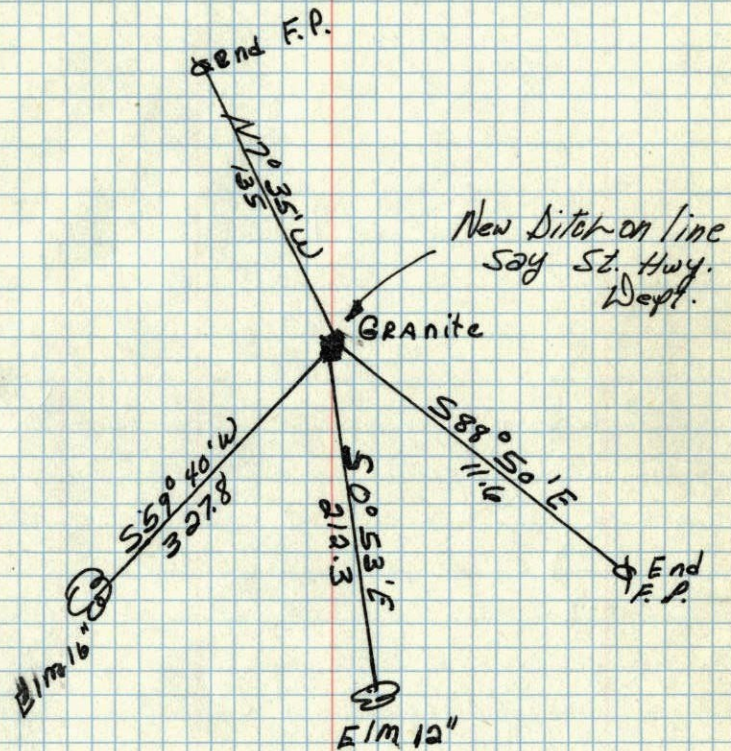 End F.P.
N7° 35' W
135
New Ditch on line
say St. Hwy.
Dept.
GRAnite
S88° 50' E
11.6
S59° 40' W
327.8
S0° 53' E
212.3
End
F.P.
Elm 16"
Elm 12"